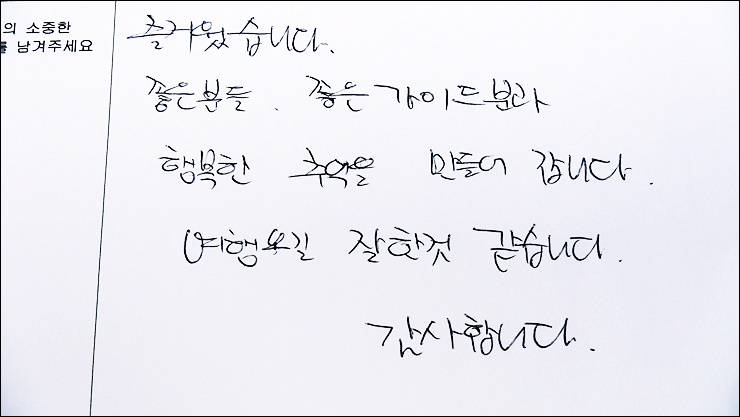 의 소중한
를 남겨주세요
즐거웠습니다.
좋은분들. 좋은 가이드분과
행복한 추억을 만들어 갑니다.
여행오길 잘한것 같습니다.
감사합니다.